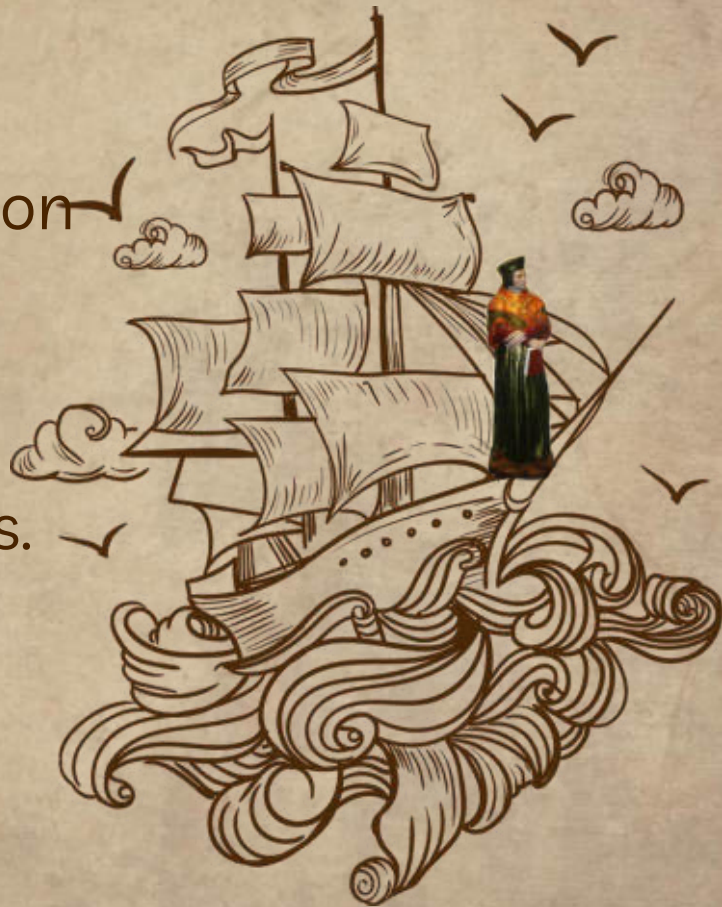 on
s.